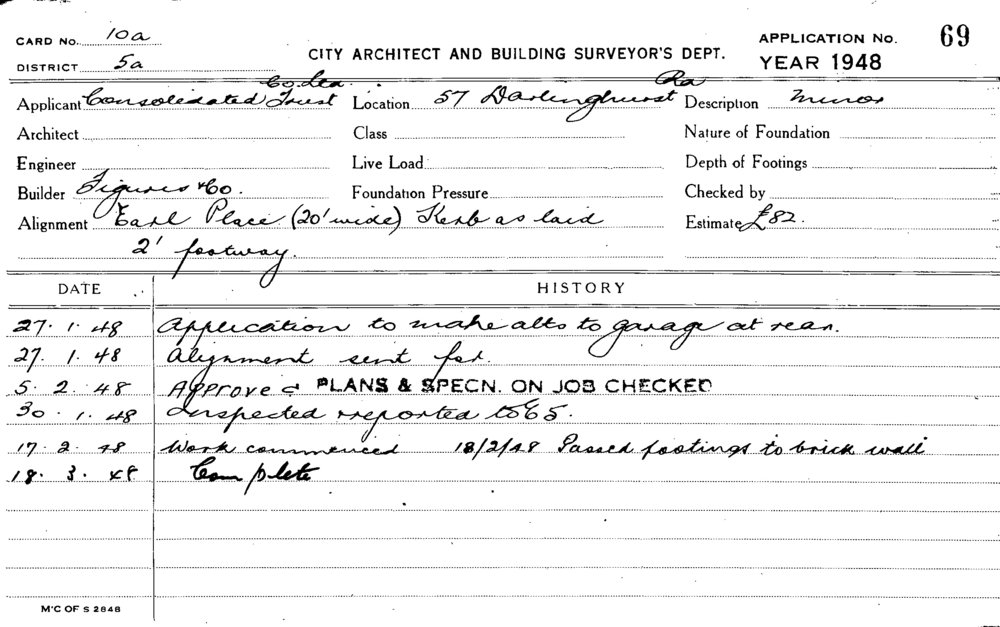 CARD No. 10a
DISTRICT 5a
CITY ARCHITECT AND BUILDING SURVEYOR'S DEPT.
APPLICATION No. 69
YEAR 1948
Applicant Consolidated Trust Co. Ltd. Location 57 Darlinghurst Rd Description Minor
Architect Class Nature of Foundation
Engineer Live Load Depth of Footings
Builder Figures & Co. Foundation Pressure Checked by
Alignment Earl Place (20' wide) Kerb as laid Estimate £82.
2' footway.
DATE HISTORY
27. 1. 48 Application to make alts to garage at rear.
27. 1. 48 Alignment sent for.
5. 2. 48 Approved PLANS & SPECN. ON JOB CHECKED
30. 1. 48 Inspected & reported to
17. 2. 48 Work commenced 18/2/48 Passed footings to brick wall
18. 3. 48 Complete
M'C OF S 2848